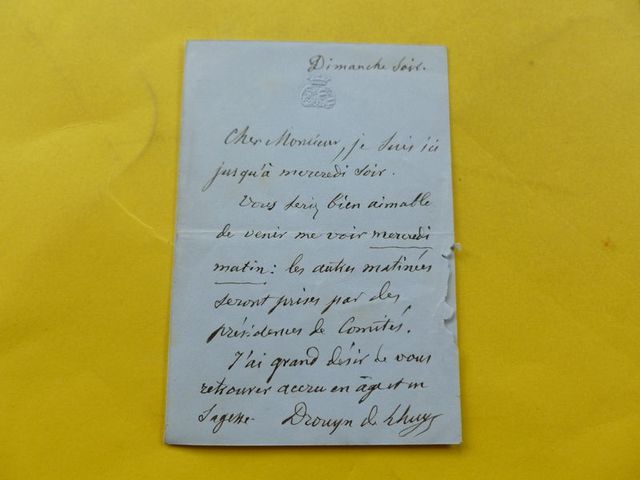 Dimanche Soir.
Cher Monsieur, je suis ici
jusqu'à mercredi soir.
Vous seriez bien aimable
de venir me voir mercredi
matin : les autres matinées
seront prises par des
présidences de Comités.
J'ai grand désir de vous
retrouver accru en âge et en
sagesse. Drouyn de Lhuys